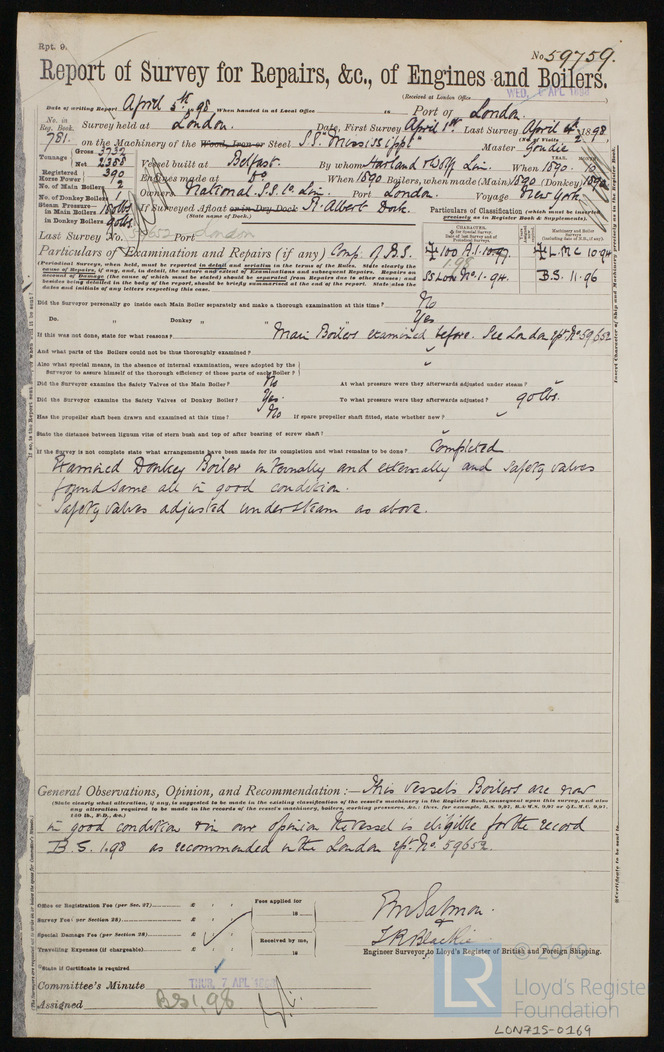 Rpt. 9.
No 59759.
Report of Survey for Repairs, &c., of Engines and Boilers.
(Received at London Office WED. 6 APL 1898
Date of writing Report April 5th 98 When handed in at Local Office 18 Port of London
No. in Reg. Book 781. Survey held at London. Date, First Survey April 1st Last Survey April 4th 1898
(No. of Visits 2
on the Machinery of the Wood, Iron or Steel S.S. "Mississippi" Master Goudie
Tonnage Gross 3732
Net 2388
Vessel built at Belfast. By whom Harland & Wolff Lim. When 1890. 10
Registered Horse Power 390
Engines made at Do When 1890 Boilers, when made (Main) 1890 (Donkey) 1890
No. of Main Boilers 2
Owners National S.S. Co. Lim. Port London. Voyage New York.
No. of Donkey Boilers 1
Steam Pressure in Main Boilers 160 lbs
in Donkey Boilers 90 lbs
If Surveyed Afloat or in Dry Dock R. Albert Dock.
(State name of Dock.)
Particulars of Classification (which must be inserted precisely as in Register Book & Supplements).
Last Survey No. 59652 Port London
Particulars of Examination and Repairs (if any) Comp. of B.S.
100 A.1. 10.97.
1.98
SS Lon. No.1-94.
L.M.C 10.94
B.S. 11.96
(Periodical Surveys, when held, must be reported in detail and seriatim in the terms of the Rules. State clearly the cause of Repairs, if any, and, in detail, the nature and extent of Examinations and subsequent Repairs. Repairs on account of Damage (the cause of which must be stated) should be separated from Repairs due to other causes; and besides being detailed in the body of the report, should be briefly summarised at the end of the report. State also the dates and initials of any letters respecting this case.
Did the Surveyor personally go inside each Main Boiler separately and make a thorough examination at this time? No
Do. " Donkey " " " " Yes
If this was not done, state for what reasons? Main Boilers examined before. See London Rpt. No 59652
And what parts of the Boilers could not be thus thoroughly examined?
Also what special means, in the absence of internal examination, were adopted by the Surveyor to assure himself of the thorough efficiency of those parts of each Boiler?
Did the Surveyor examine the Safety Valves of the Main Boiler? No At what pressure were they afterwards adjusted under steam?
Did the Surveyor examine the Safety Valves of Donkey Boiler? Yes. To what pressure were they afterwards adjusted? 90 lbs.
Has the propeller shaft been drawn and examined at this time? No If spare propeller shaft fitted, state whether new?
State the distance between lignum vitæ of stern bush and top of after bearing of screw shaft?
If the Survey is not complete state what arrangements have been made for its completion and what remains to be done? Completed
Examined Donkey Boiler internally and externally and safety valves
found same all in good condition.
Safety valves adjusted under steam as above.
General Observations, Opinion, and Recommendation:— This vessel's Boilers are now
(State clearly what alteration, if any, is suggested to be made in the existing classification of the vessel's machinery in the Register Book, consequent upon this survey, and also any alteration required to be made in the records of the vessel's machinery, boilers, working pressures, &c.
in good condition & in our opinion the vessel is eligible for the record
B.S. 1.98 as recommended in the London Rpt. No. 59652.
Office or Registration Fee (per Sec. 27) £ : :
Fees applied for
18
Survey Fee (per Section 28) £ : :
Special Damage Fee (per Section 28) £ : :
Received by me,
18
Travelling Expenses (if chargeable) £ : :
Salmon.
&
J.R. Blackie
Engineer Surveyor to Lloyd's Register of British and Foreign Shipping.
*State if Certificate is required
Committee's Minute THUR. 7 APL 1898
Assigned BS 1,98
© 2019
LR
Lloyd's Register
Foundation
LON715-0169